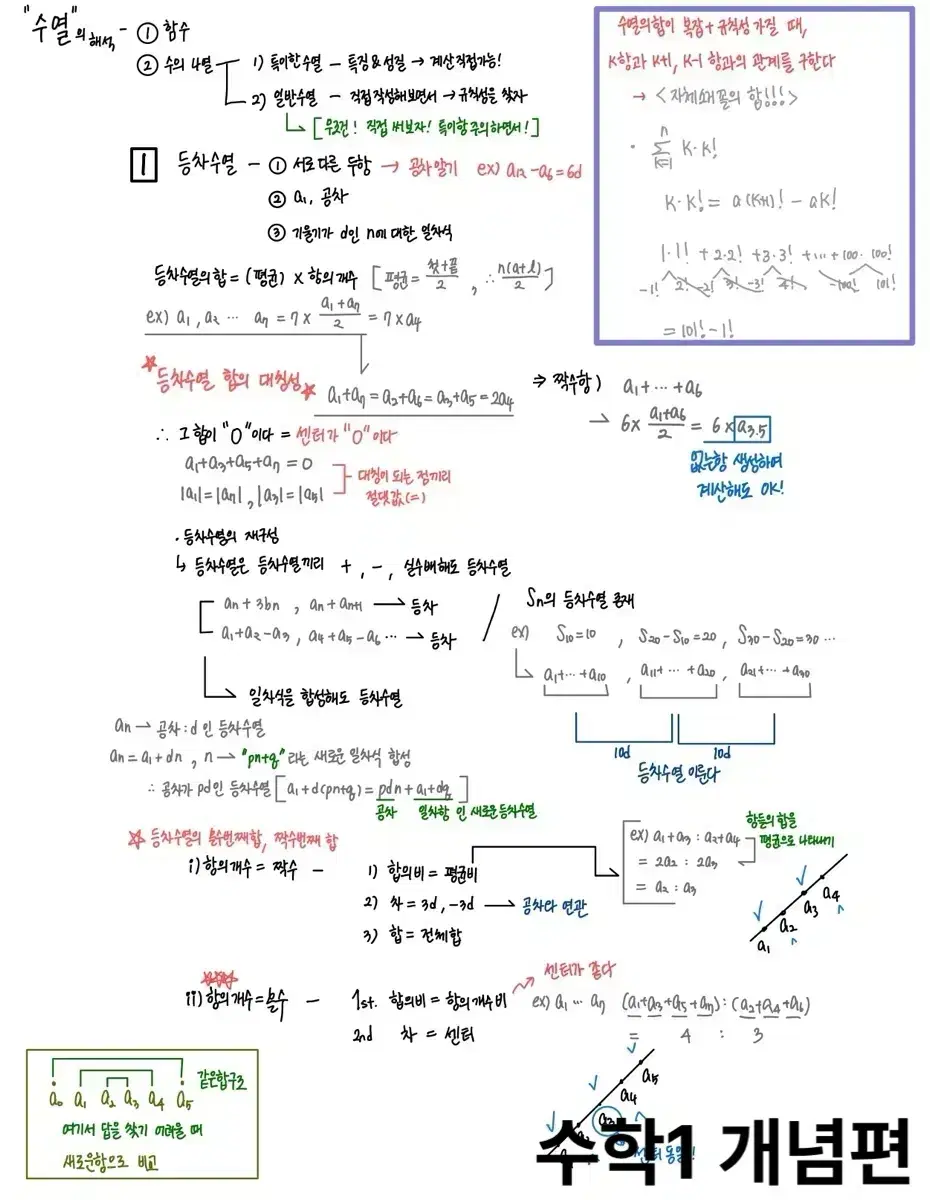 "수열"의 해석 - ① 함수
② 수의 나열
1) 특이한 수열 - 특징&성질 → 계산 직접가능!
2) 일반수열 - 직접 작성해보면서 → 규칙성을 찾자
[무조건! 직접 써보자! 특이항 주의하면서!]
수열의 합이 복잡 + 규칙성 가질 때,
K항과 K+1, K-1 항과의 관계를 구한다
→ <자체소거꼴의 합!!!>
· Σ_{K=1}^{n} K·K!
K·K! = a(K+1)! - aK!
1·1! + 2·2! + 3·3! + ... + 100·100!
-1! 2! -2! 3! -3! 4! -100! 101!
= 101! - 1!
1 등차수열 - ① 서로 다른 두항 → 공차 알기 ex) a₁₂ - a₆ = 6d
② a₁, 공차
③ 기울기가 d인 n에 대한 일차식
등차수열의 합 = (평균) × 항의 개수 [평균 = 첫+끝/2, ∴ n(a+l)/2]
ex) a₁, a₂ ... a₇ = 7 × (a₁+a₇)/2 = 7×a₄
☆등차수열 합의 대칭성☆
a₁+a₇ = a₂+a₆ = a₃+a₅ = 2a₄
⇒ 짝수항) a₁+...+a₆
→ 6× (a₁+a₆)/2 = 6×a₃.₅
없는항 생성하여
계산해도 OK!
∴ 그 합이 "0"이다 = 센터가 "0"이다
a₁+a₃+a₅+a₇ = 0
|a₁|=|a₇|, |a₃|=|a₅|
대칭이 되는 점끼리
절댓값(=)
· 등차수열의 재구성
↳ 등차수열은 등차수열끼리 +, -, 실수배해도 등차수열
an+3bn, an+an+1 → 등차
a₁+a₂-a₃, a₄+a₅-a₆ ... → 등차
Sn의 등차수열 존재
ex) S₁₀=10, S₂₀-S₁₀=20, S₃₀-S₂₀=30 ...
a₁+...+a₁₀, a₁₁+...+a₂₀, a₂₁+...+a₃₀
10d 10d
등차수열 이룬다
일차식을 합성해도 등차수열
an → 공차:d 인 등차수열
an = a₁+dn, n → "pn+q"라는 새로운 일차식 합성
∴ 공차가 pd인 등차수열 [a₁+d(pn+q) = pdn+a₁+dq]
공차 일차항 인 새로운 등차수열
☆ 등차수열의 홀수번째합, 짝수번째 합
i) 항의개수 = 짝수 -
1) 합의비 = 평균비
2) 차 = 3d, -3d → 공차와 연관
3) 합 = 전체합
ex) a₁+a₃ : a₂+a₄
= 2a₂ : 2a₃
= a₂ : a₃
항들의 합을
평균으로 나타내기
a₁ a₂ a₃ a₄
ii) 항의개수 = 홀수 -
1st. 합의비 = 항의개수비
센터가 좋다
ex) a₁ ... a₇ (a₁+a₃+a₅+a₇) : (a₂+a₄+a₆)
= 4 : 3
2nd 차 = 센터
a₃ a₄ a₅
센터 동일!
a₀ a₁ a₂ a₃ a₄ a₅
같은합구조
여기서 답을 찾기 어려울 때
새로운항으로 비교
수학1 개념편